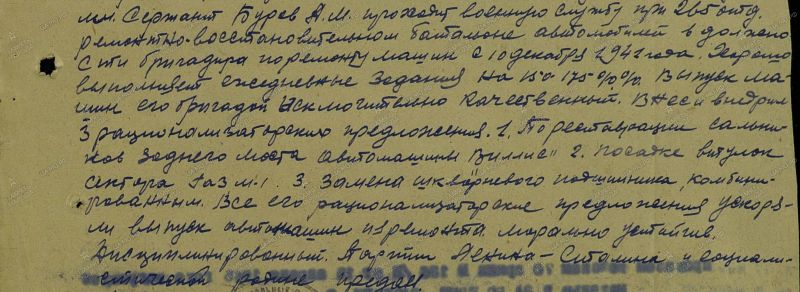 мл. Сержант Бурев А.М. проходит военную службу при 265 отд.
ремонтно-восстановительном батальоне автомобилей в должно-
сти бригадира по ремонту машин с 10 декабря 1942 года. Хорошо
выполняет ежедневные задания на 150-175-%%. Выпуск ма-
шин его бригадой исключительно качественный. Внес и внедрил
3 рационализаторских предложения. 1. По реставрации сальни-
ков заднего моста автомашины Виллис" 2. посадке втулок
сектора Газ м.1. 3. Замена шкворневого подшипника, комбини-
рованным. Все его рационализаторские предложения ускоря-
ли выпуск автомашин из ремонта. Морально устойчив.
Дисциплинированный. Партии Ленина-Сталина и социали-
стической родине предан.